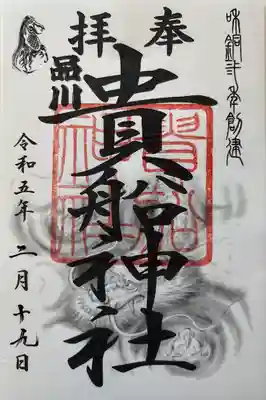 和銅弐年創建
奉拝
品川
貴船神社
令和五年
二月十九日